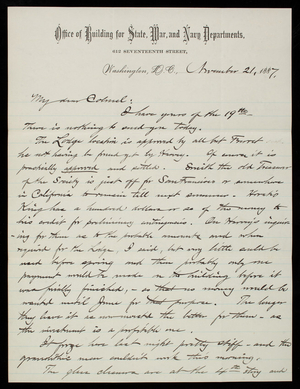 Office of Building for State, War, and Navy Departments,
613 SEVENTEENTH STREET,
Washington, D.C., November 21, 1887.
My dear Colonel:
I have yours of the 19th.
There is nothing to send you today.
The Lodge location is approved by all but Forrest
he not having to passed upon it by Harvey. Of course it is
practically approved and settled. Smith the old Treasurer
of the Society is just off for San Francisco or somewhere
in California to remain till next summer.
King has a hundred dollars or so of the money to
his credit for preliminary contingencies. On Harvey's inquir-
ing for them as to the probable amounts and when
required for the Lodge I said, but very little could be
used before spring and then probably only one
payment would be made on the building before it
was finally finished, - so that no money would be
wanted until June for that purpose. The longer
they leave it as now invested the better for them - as
the investment is a profitable one.
It froze here last night pretty stiff - and the
granolithic men couldn't work this morning.
The glass cleaners are at the 4th story and